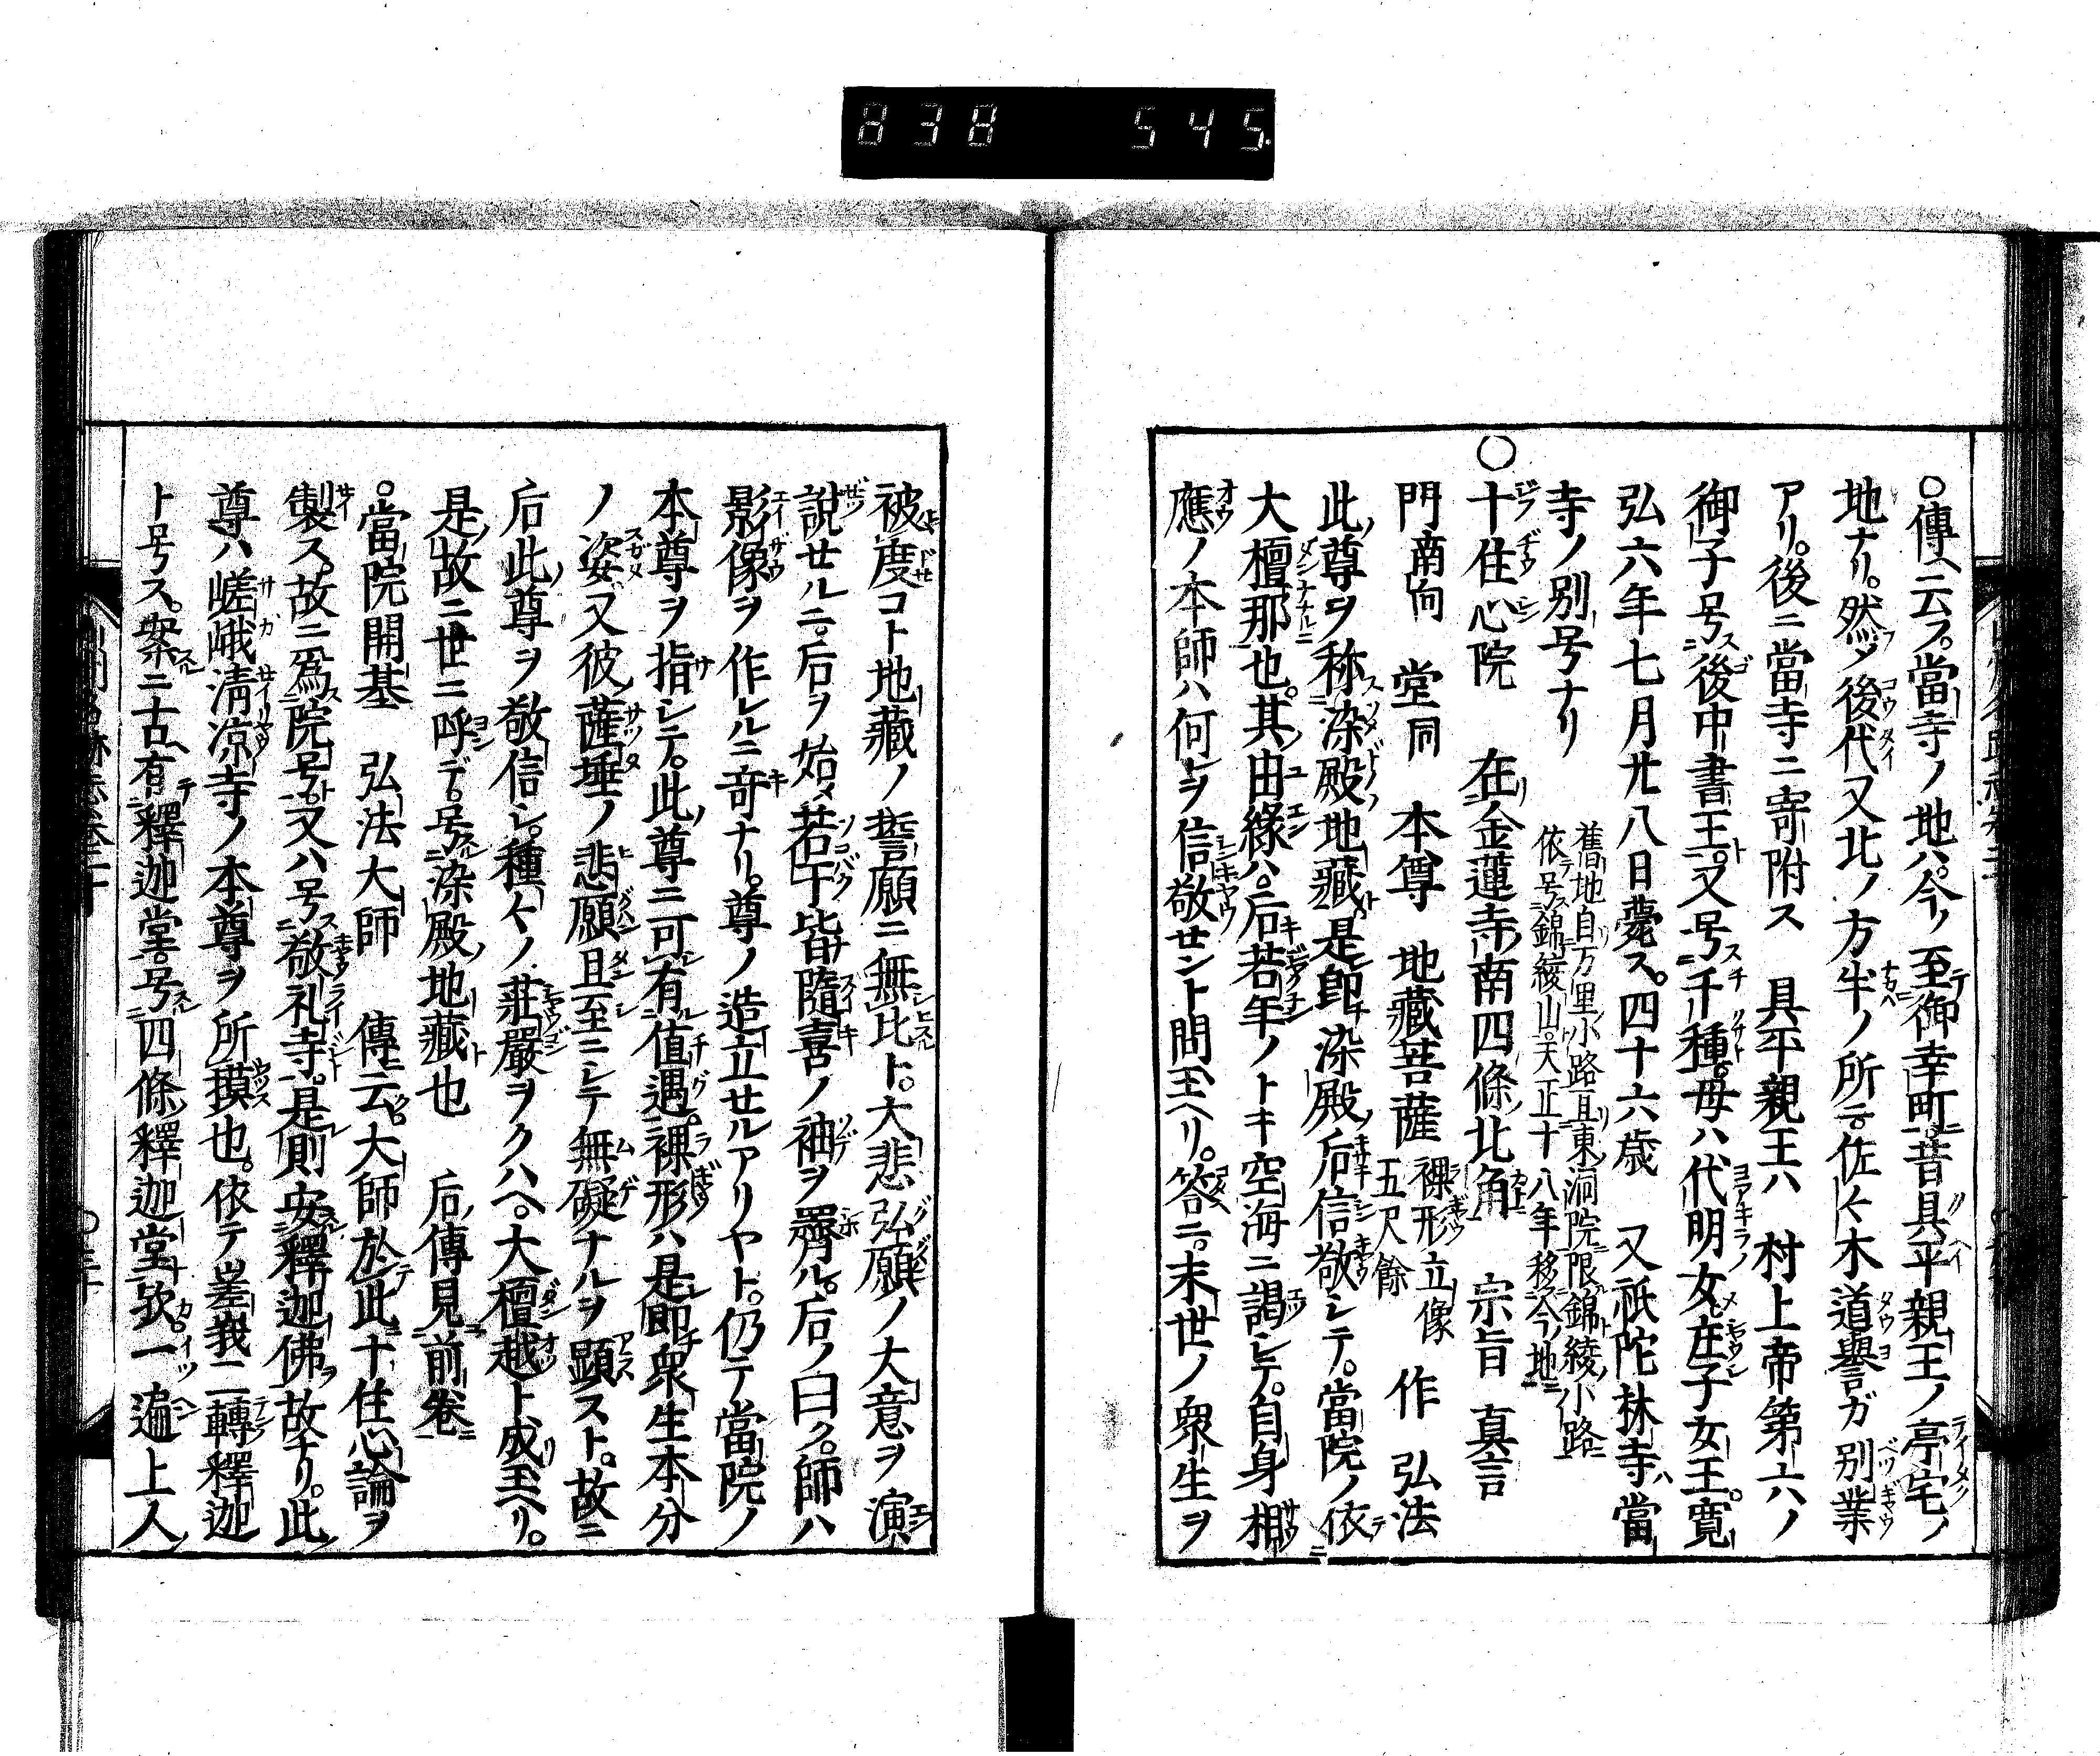 838 545.
○傳云フ。當寺ノ地ハ。今ノ至テ御幸町ニ。昔具平親王ノ亭宅ノ
地ナリ。然ノ後代又北ノ方半ノ所ニ。佐々木道譽ガ別業
アリ。後ニ當寺ニ寄附ス 具平親王ハ 村上帝第六ノ
御子号ス後中書王ト。又号ス千種ト。母ハ代明女ヒ庄子女王。寛
弘六年七月廿八日薨ス。四十六歳 又祇陀林寺ハ當
寺ノ別号ナリ
○十住心院 在金蓮寺南四條北角 宗旨 真言
舊地自万里小路亘東洞院限錦綾小路
依号錦綾山。天正十八年移今ノ地
門南向 堂同 本尊 地藏菩薩 裸形立像
五尺餘 作 弘法
此ノ尊ヲ称ス染殿地藏ト。是即チ染殿ノ后信敬シテ。當院ノ依テ
大檀那也。其由縁ハ。后若年ノトキ空海ニ謁シテ。自身相
應ノ本師ハ何レヲ信敬セント問玉ヘリ。答ニ。末世ノ衆生ヲ
被度コト地藏ノ誓願ニ無比ト。大悲弘願ノ大意ヲ演
説セルニ。后ヲ始メ若干皆隨喜ノ袖ヲ霑ル。后ノ曰ク。師ハ
影像ヲ作レルニ竒ナリ。尊ノ造立セルアリヤト。仍テ當院ノ
本尊ヲ指シテ。此ノ尊ニ可有値遇。裸形ハ是即チ衆生本分
ノ姿又彼薩埵ノ悲願且至ニシテ無礙ナルヲ顕スト。故ニ
后此ノ尊ヲ敬信シ。種々ノ莊嚴ヲクハヘ。大檀越ト成玉ヘリ。
是ノ故ニ世ニ呼デ。号染殿ノ地藏ト也 后ノ傳見前巻
○當院開基 弘法大師 傳云ク。大師於此十住心論ヲ
製ス。故ニ爲院号ト。又ハ号ス敬礼寺ト。是則安釋迦佛ヲ故ナリ。此
尊ハ嵯峨淸凉寺ノ本尊ヲ所摸也。依テ嵯峩二轉釋迦
ト号ス。案ニ古ヘ有テ釋迦堂。号四條釋迦堂ト歟。一遍上人